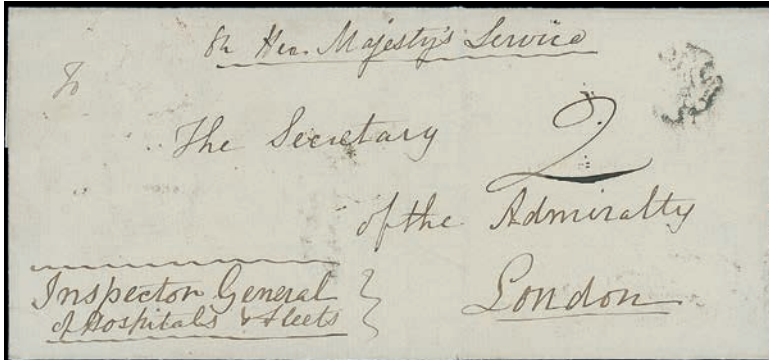 On Her Majesty's Service
To
The Secretary
2
of the Admiralty
London
Inspector General
of Hospitals & Fleets